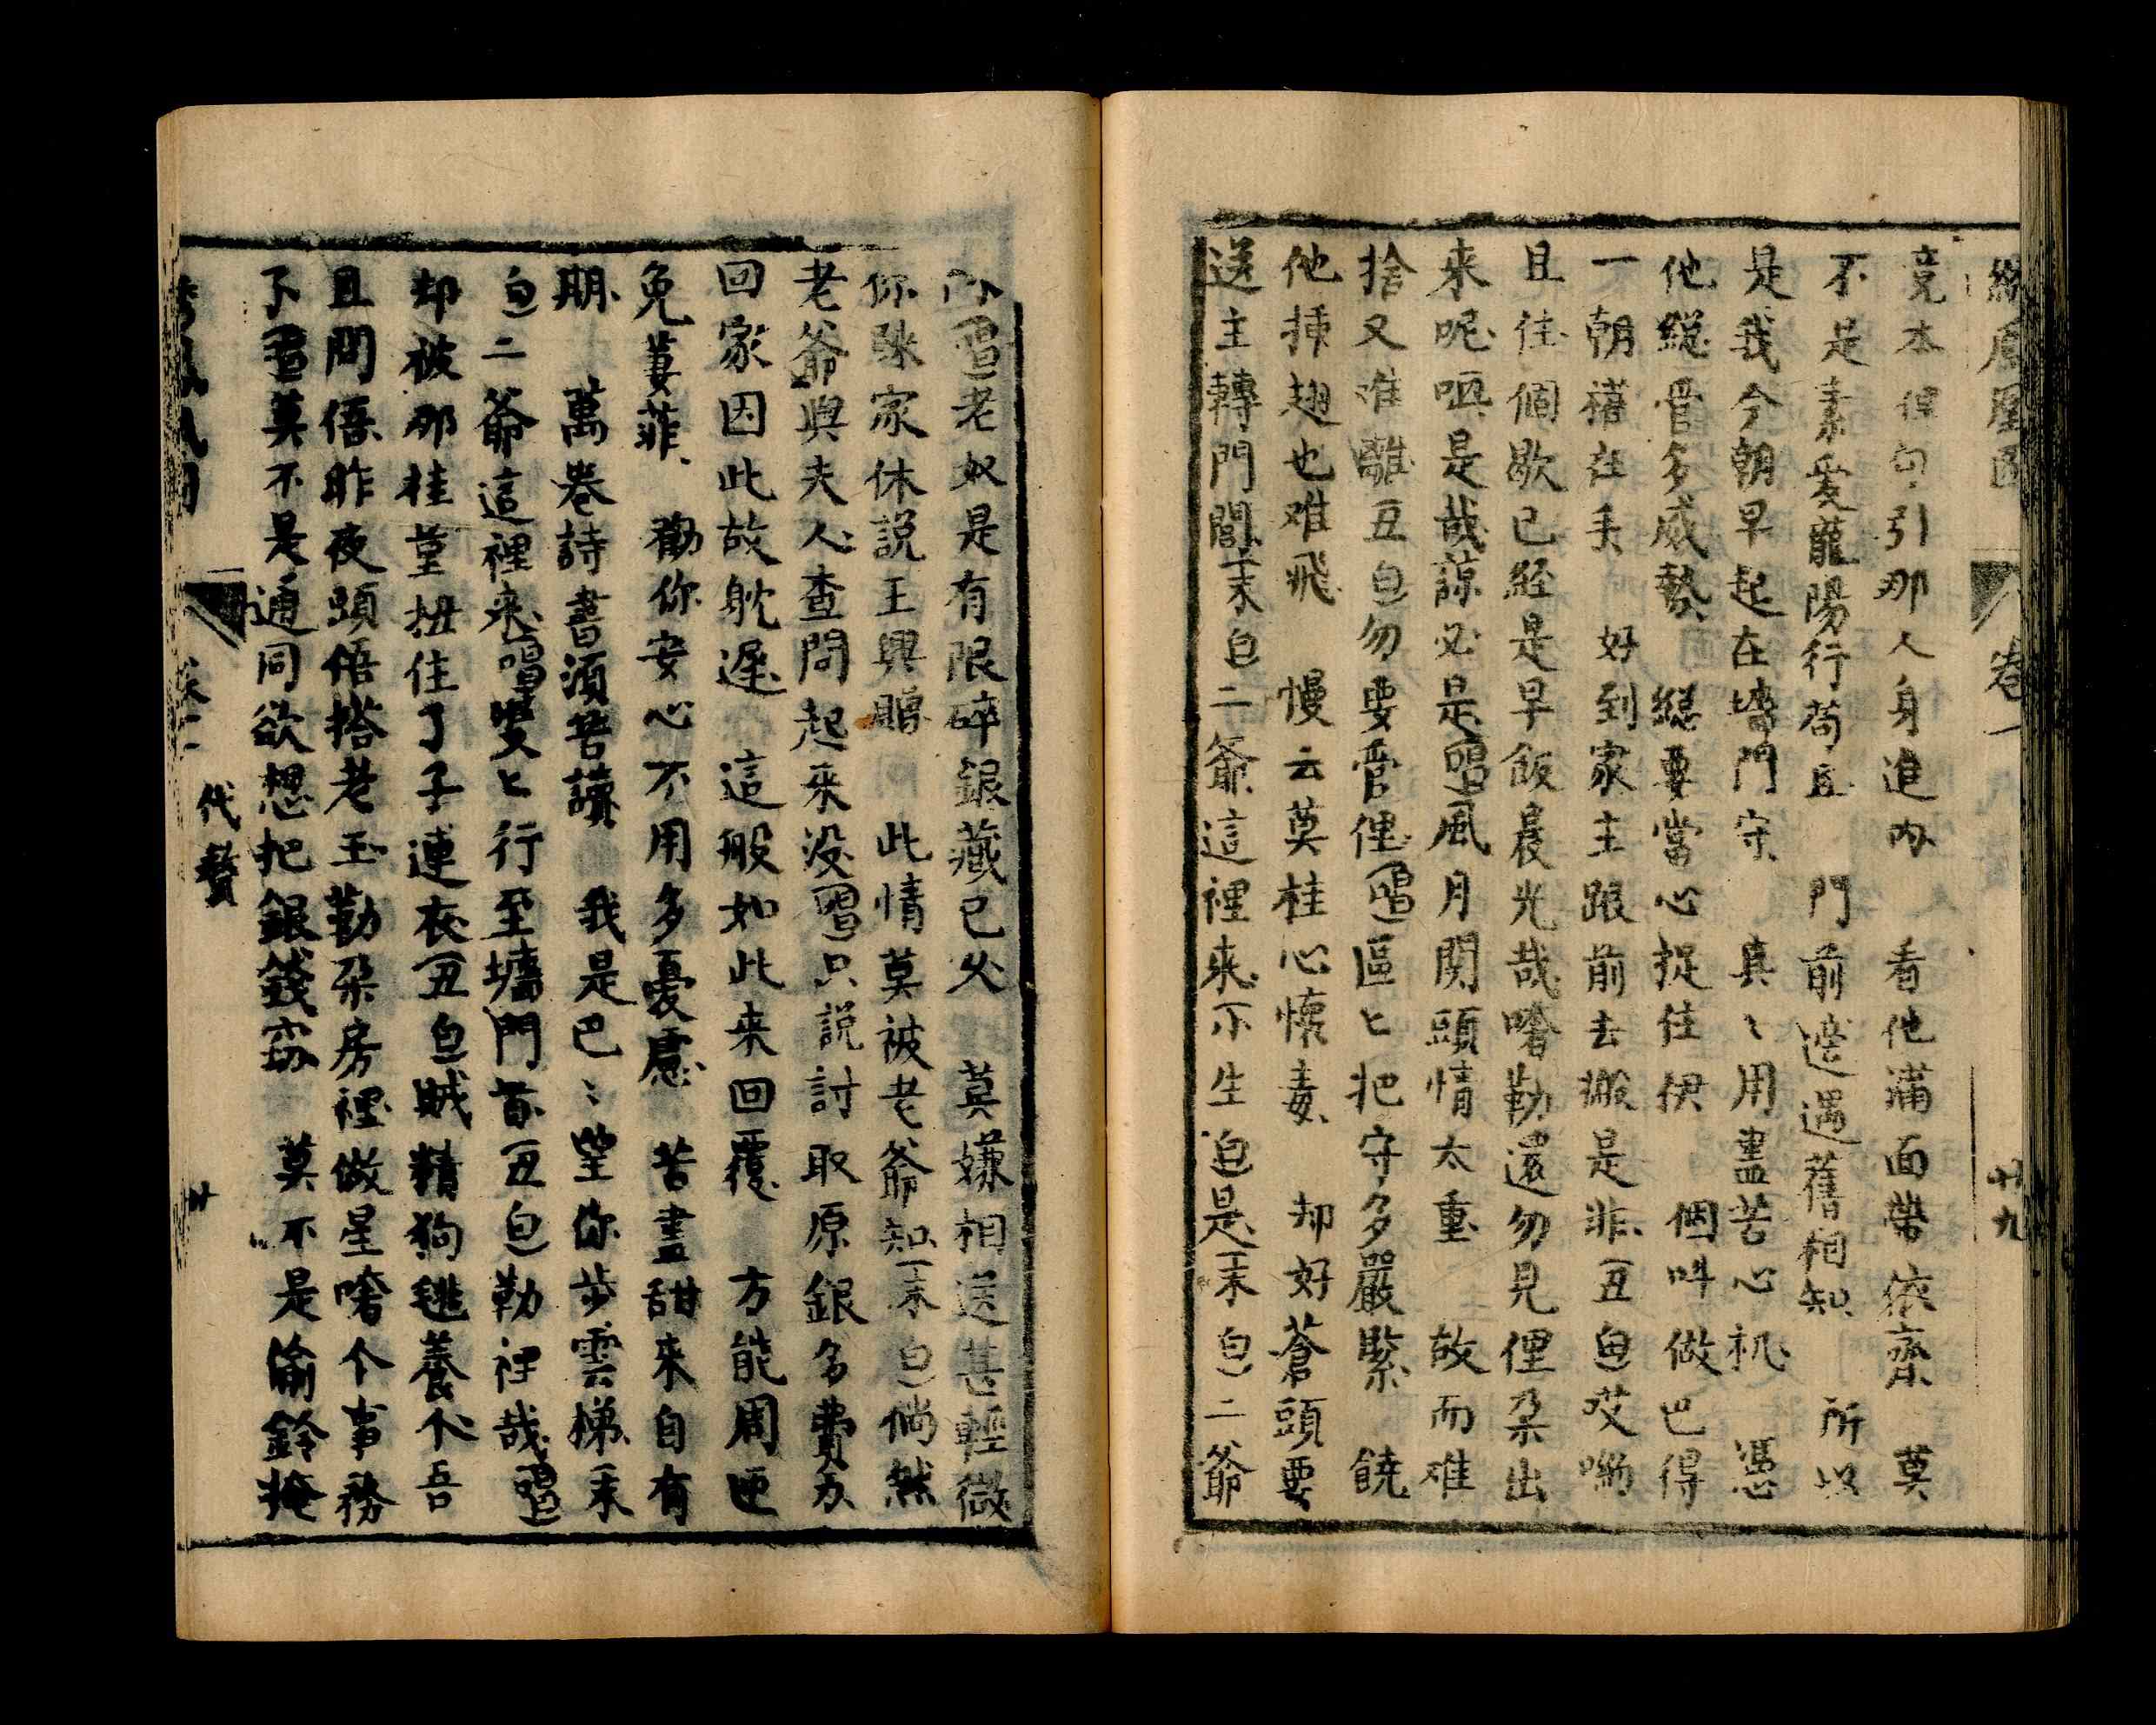 繡鳳凰圖 卷一 廿九
竟本 勾引那人身進內 看他滿面帶 齊 莫
不是素愛龍陽行苟且 門前 遇舊相知 所以
是我今朝早起在墻門守 真〻用盡苦心机 憑
他縂管多威勢 縂要當心捉住伊 個呌做巴得
一朝 在手 好到家主跟前去搬是非丑白哎喲
且住個歇已經是早飯晨光哉嗜勒還勿見俚朶出
來呢 是哉諒必是唱風月関頭情太重 故而难
捨又难離丑白勿要管俚唱區匕把守多嚴緊 饒
他揷翅也难飛 慢云莫桂心懷毒 却好蒼頭要
送主轉門閭末白二爺這裡來小生白是末白二爺
唱老奴是有限碎銀藏已久 莫嫌相送甚輕微
你 家休説王興贈 此情莫被老爺知末白倘然
老爺與夫人查問起來没唱只説討取原銀多費力
回家因此故躭遲 這般如此来回覆 方能周匝
免萋菲 勸你安心不用多憂慮 苦盡甜来自有
期 萬卷詩書須苦讀 我是巴〻望你步雲梯末
白二爺這裡來唱雙匕行至墻門首丑白勒裡哉唱
却被那桂堂扭住了子連衣丑白賊精狗毴養个吾
且問㑚昨夜頭㑚搭老王勒朶房裡做星嗜个事務
下唱莫不是通同欲想把銀錢竊 莫不是偷鈴掩
卷一 代贅 廿